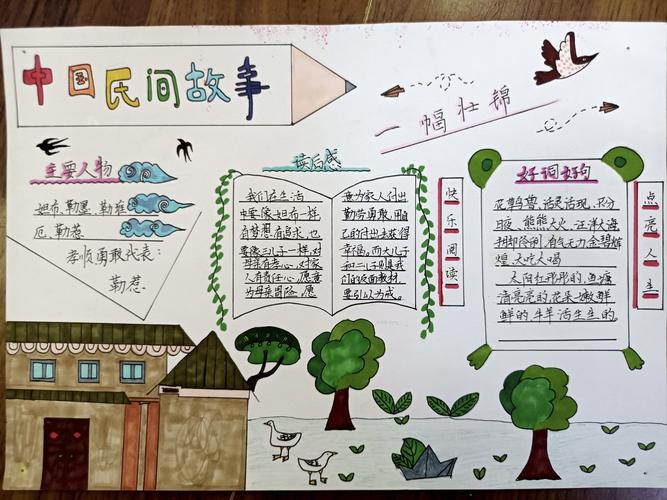 中国民间故事
一幅壮锦
主要人物
妲布、勒墨、勒堆
厄、勒惹
孝顺勇敢代表:
勒惹
读后感
我们在生活
中要像妲布一样
有梦想,有追求,也
要像三儿子一样,对
母亲有孝心,对家
人有责任心,愿意
为母亲冒险,愿
意为家人付出
勤劳勇敢,用自
己的付出去获得
幸福。而大儿子
和二儿子则是我
们的反面教材,
要引以为戒。
快乐阅读
好词好句
花
活灵活现、
日夜、熊熊大火、汪洋大海
有气无力、金碧辉
煌、大吃大喝
太阳红彤彤的,鱼塘
清亮亮的,花朵一嫩鲜
鲜的,牛羊活生生的。
点亮人生